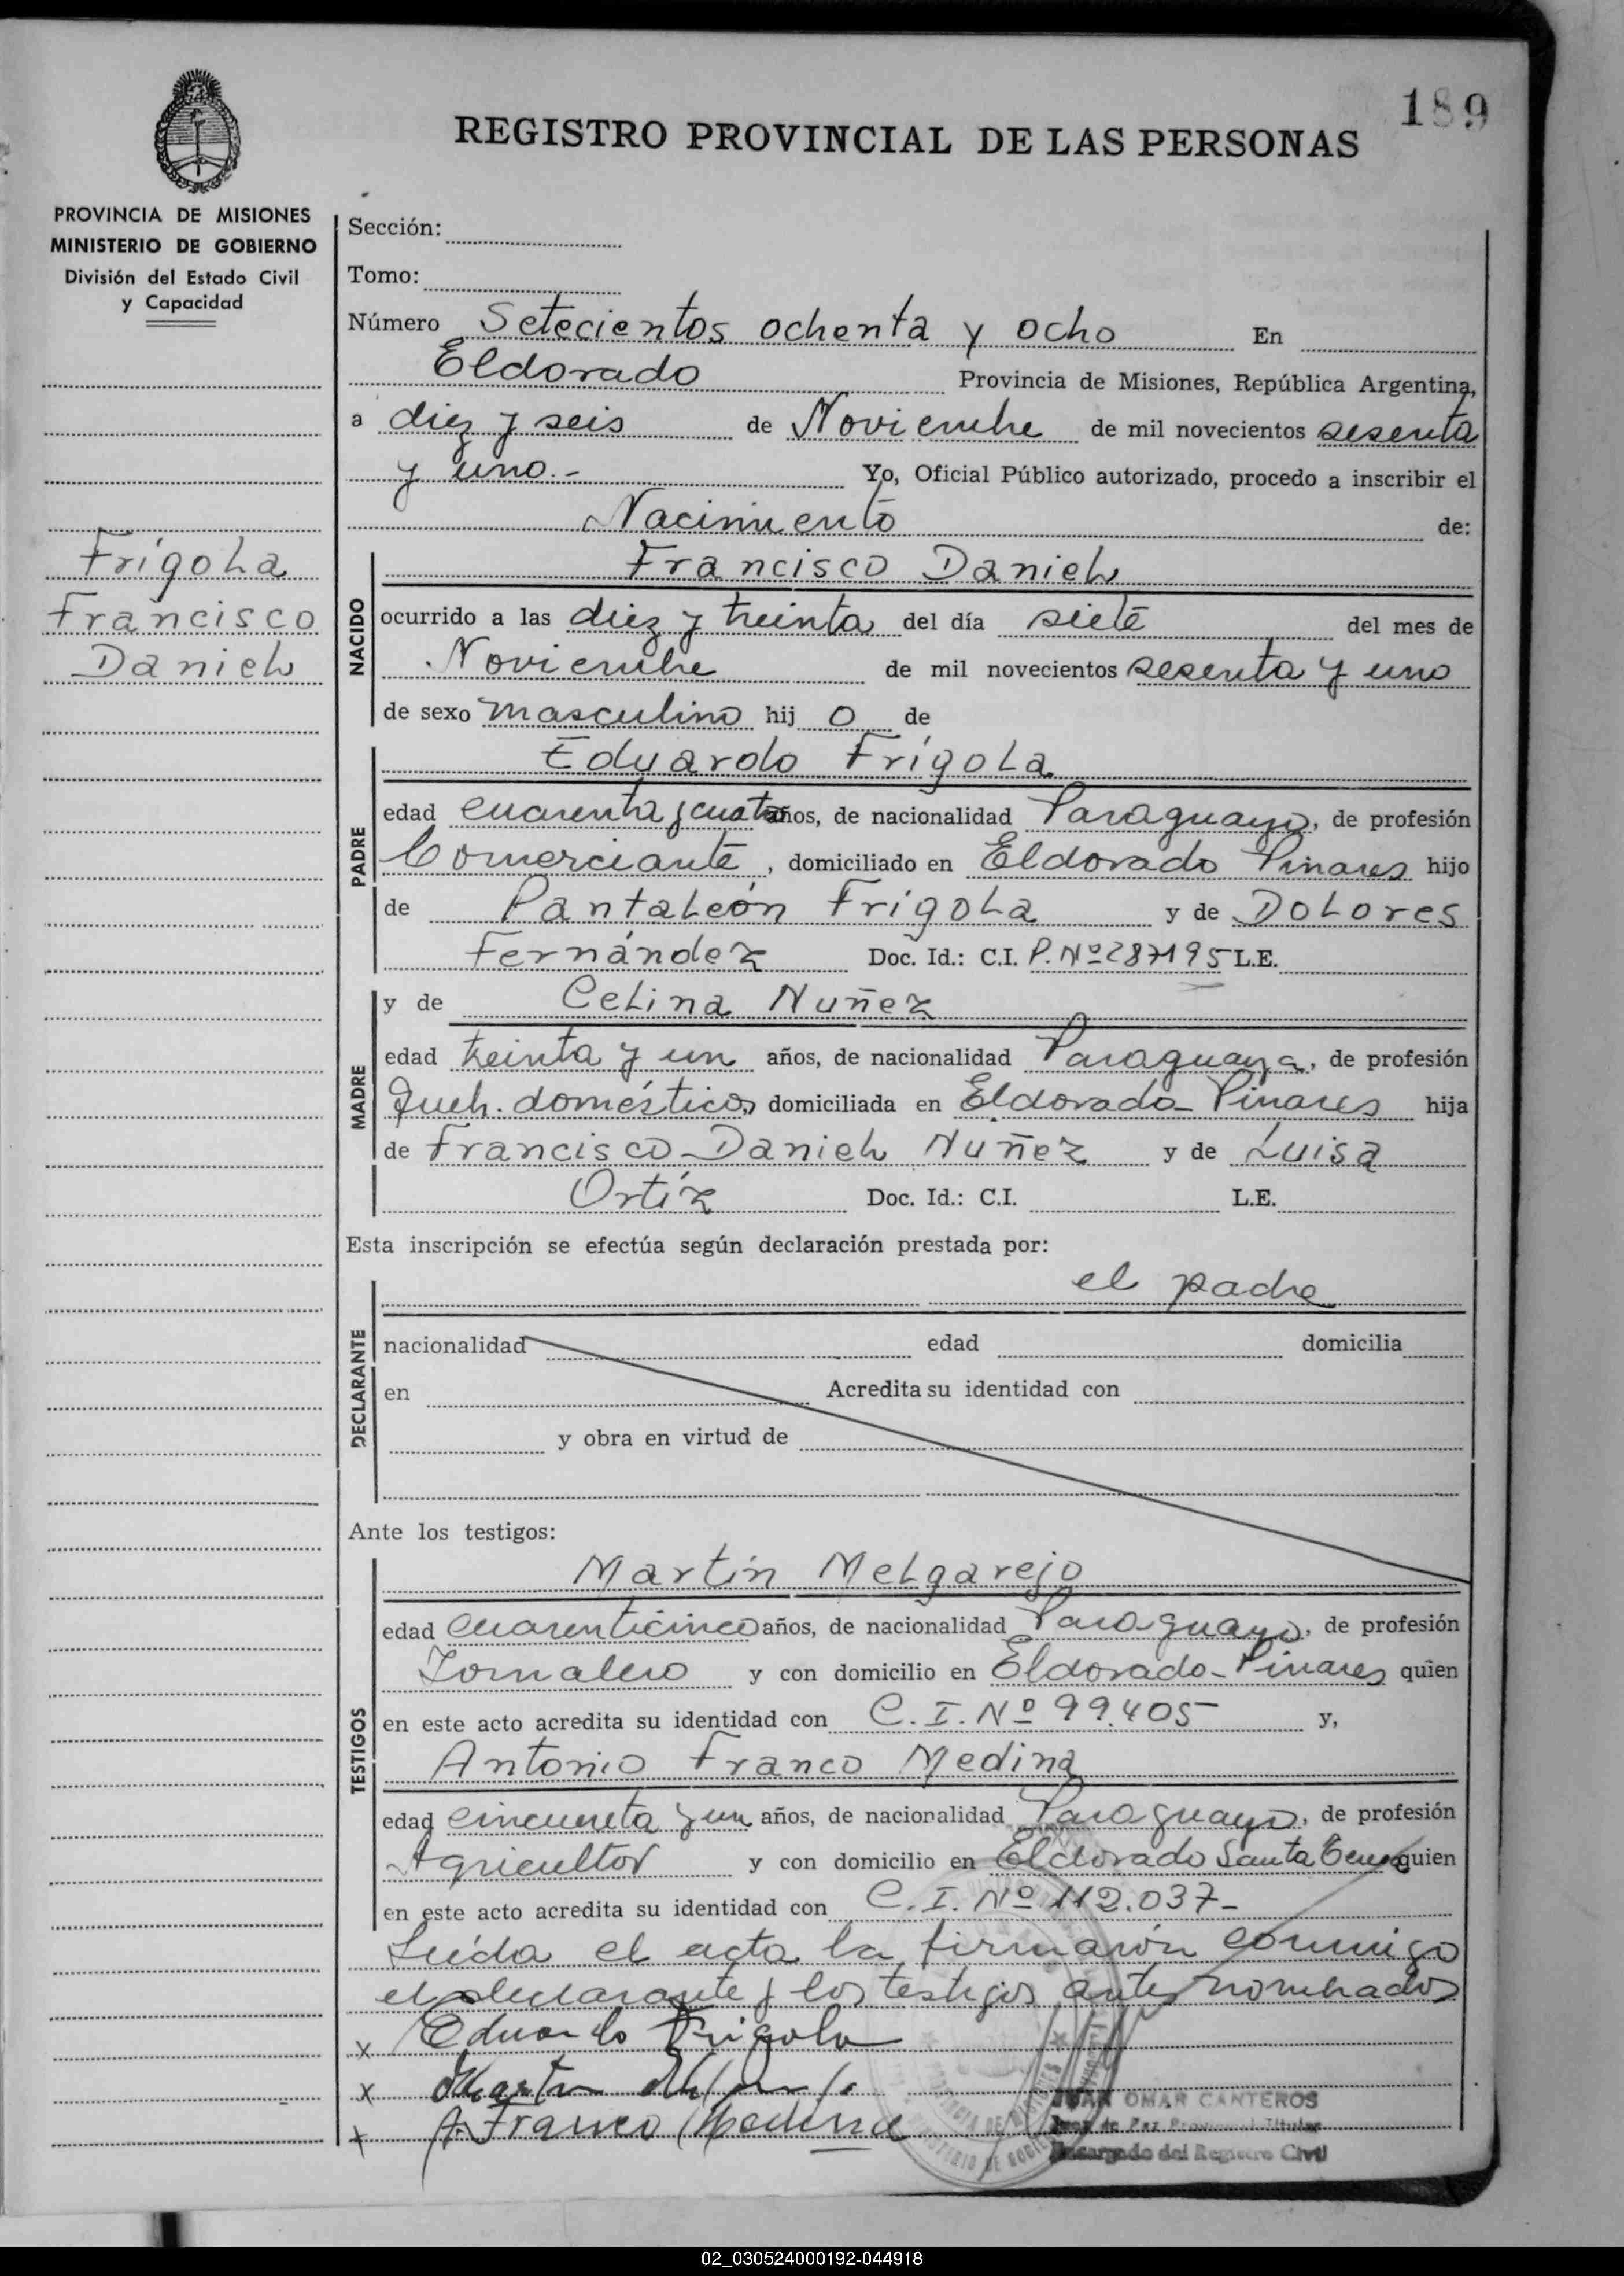 189
REGISTRO PROVINCIAL DE LAS PERSONAS
PROVINCIA DE MISIONES
MINISTERIO DE GOBIERNO
División del Estado Civil
y Capacidad
Frígola
Francisco
Daniel
Sección:
Tomo:
Número Setecientos ochenta y ocho En
Eldorado Provincia de Misiones, República Argentina,
a diez y seis de Noviembre de mil novecientos sesenta
y uno.- Yo, Oficial Público autorizado, procedo a inscribir el
Nacimiento de:
NACIDO
Francisco Daniel
ocurrido a las diez y treinta del día siete del mes de
Noviembre de mil novecientos sesenta y uno
de sexo masculino hij o de
PADRE
Eduardo Frígola
edad cuarenta y cuatro años, de nacionalidad Paraguayo, de profesión
Comerciante, domiciliado en Eldorado Pinares hijo
de Pantaleón Frígola y de Dolores
Fernández Doc. Id.: C.I. P. Nº 287195 L.E.
MADRE
y de Celina Nuñez
edad treinta y un años, de nacionalidad Paraguaya, de profesión
Queh. domésticos, domiciliada en Eldorado-Pinares hija
de Francisco Daniel Nuñez y de Luisa
Ortíz Doc. Id.: C.I. L.E.
Esta inscripción se efectúa según declaración prestada por:
DECLARANTE
el padre
nacionalidad edad domicilia
en Acredita su identidad con
y obra en virtud de
Ante los testigos:
TESTIGOS
Martín Melgarejo
edad cuarenticinco años, de nacionalidad Paraguayo, de profesión
Jornalero y con domicilio en Eldorado-Pinares quien
en este acto acredita su identidad con C.I. Nº 99.405 y,
Antonio Franco Medina
edad cincuenta y un años, de nacionalidad Paraguayo, de profesión
Agricultor y con domicilio en Eldorado Santa quien
en este acto acredita su identidad con C.I. Nº 112.037-
Leída el acta la firmarón conmigo
el declarante y los testigos antes nombrados
x Eduardo Frigola
x Martin
x A. Franco Medina
JUAN OMAR CANTEROS
Juez de Paz Provincial Titular
Encargado del Registro Civil
02_030524000192-044918